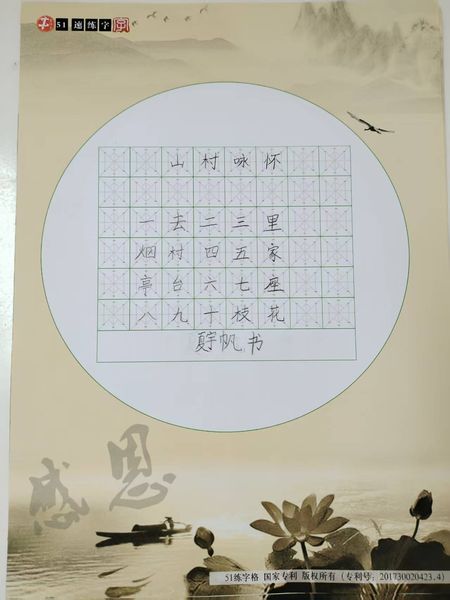 51速练字
山村咏怀
一去二三里
烟村四五家
亭台六七座
八九十枝花
夏宇帆书
感恩
51练字格 国家专利 版权所有 (专利号: 201730020423.4)